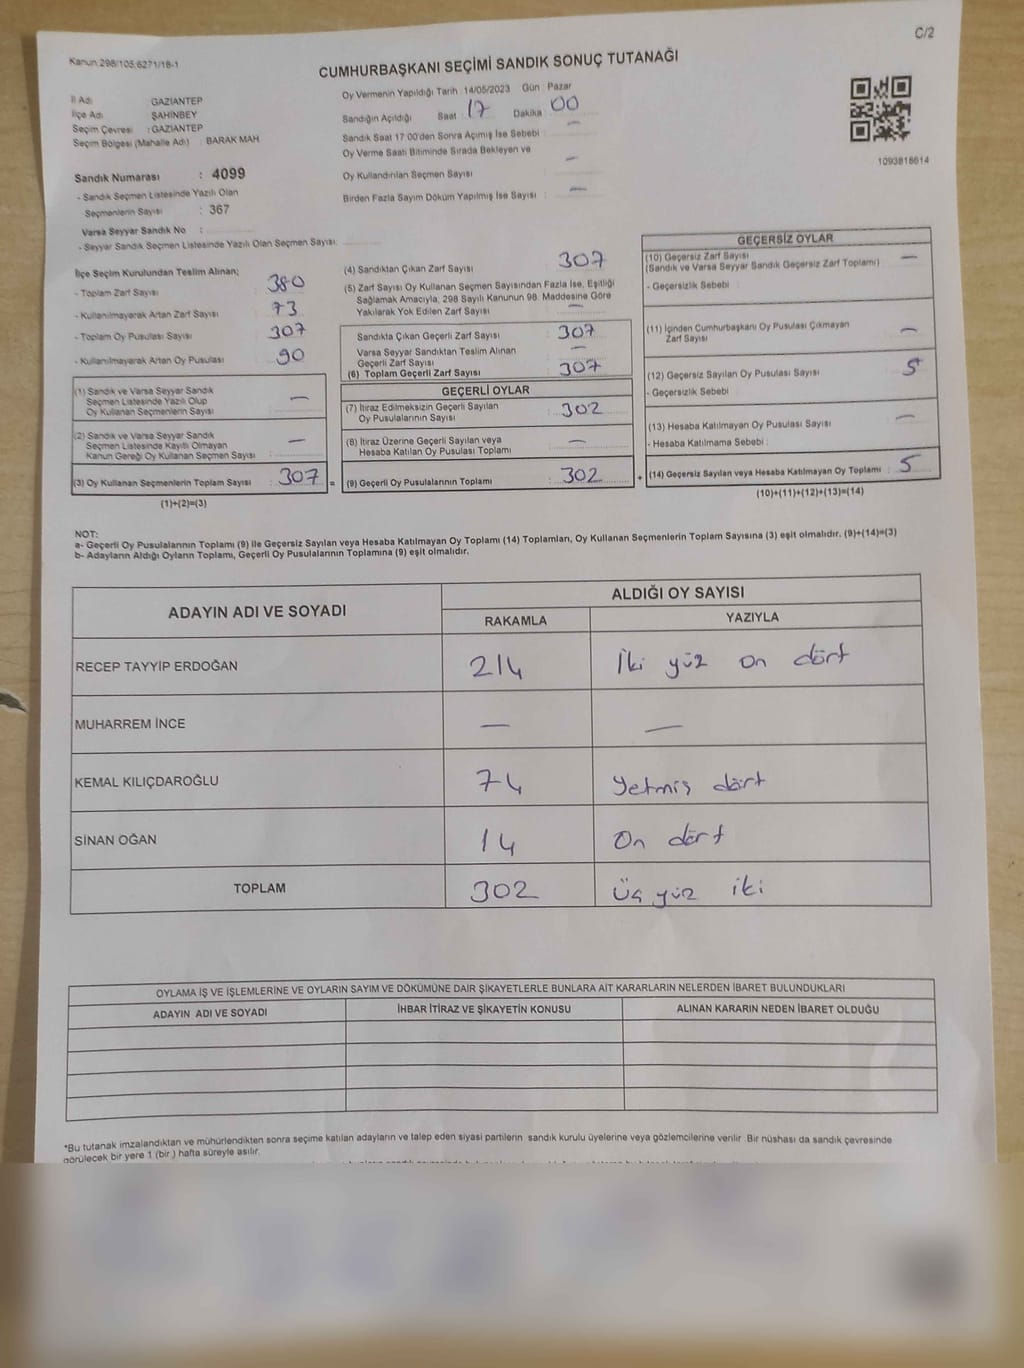 C/2
Kanun 298/105,6271/18-1
CUMHURBAŞKANI SEÇİMİ SANDIK SONUÇ TUTANAĞI
İl Adı : GAZIANTEP
İlçe Adı : ŞAHİNBEY
Seçim Çevresi : GAZIANTEP
Seçim Bölgesi (Mahalle Adı) : BARAK MAH
Sandık Numarası : 4099
- Sandık Seçmen Listesinde Yazılı Olan
Seçmenlerin Sayısı : 367
Varsa Seyyar Sandık No :
- Seyyar Sandık Seçmen Listesinde Yazılı Olan Seçmen Sayısı:
Oy Vermenin Yapıldığı Tarih 14/05/2023 Gün Pazar
Sandığın Açıldığı Saat : 17 Dakika : 00
Sandık Saat 17.00'den Sonra Açımış İse Sebebi : —
Oy Verme Saati Bitiminde Sırada Bekleyen ve
Oy Kullandırılan Seçmen Sayısı : —
Birden Fazla Sayım Döküm Yapılmış İse Sayısı : —
1093818614
İlçe Seçim Kurulundan Teslim Alınan;
- Toplam Zarf Sayısı : 380
- Kullanılmayarak Artan Zarf Sayısı : 73
- Toplam Oy Pusulası Sayısı : 307
- Kullanılmayarak Artan Oy Pusulası : 90
(1) Sandık ve Varsa Seyyar Sandık
Seçmen Listesinde Yazılı Olup
Oy Kullanan Seçmenlerin Sayısı : —
(2) Sandık ve Varsa Seyyar Sandık
Seçmen Listesinde Kayıtlı Olmayan
Kanun Gereği Oy Kullanan Seçmen Sayısı : —
(3) Oy Kullanan Seçmenlerin Toplam Sayısı : 307 =
(1)+(2)=(3)
(4) Sandıktan Çıkan Zarf Sayısı : 307
(5) Zarf Sayısı Oy Kullanan Seçmen Sayısından Fazla İse, Eşitliği
Sağlamak Amacıyla, 298 Sayılı Kanunun 98. Maddesine Göre
Yakılarak Yok Edilen Zarf Sayısı :
Sandıkta Çıkan Geçerli Zarf Sayısı : 307
Varsa Seyyar Sandıktan Teslim Alınan
Geçerli Zarf Sayısı : —
(6) Toplam Geçerli Zarf Sayısı : 307
GEÇERLİ OYLAR
(7) İtiraz Edilmeksizin Geçerli Sayılan
Oy Pusulalarının Sayısı : 302
(8) İtiraz Üzerine Geçerli Sayılan veya
Hesaba Katılan Oy Pusulası Toplamı : —
(9) Geçerli Oy Pusulalarının Toplamı : 302 +
GEÇERSİZ OYLAR
(10) Geçersiz Zarf Sayısı : —
(Sandık ve Varsa Seyyar Sandık Geçersiz Zarf Toplamı)
- Geçersizlik Sebebi :
(11) İçinden Cumhurbaşkanı Oy Pusulası Çıkmayan
Zarf Sayısı : —
(12) Geçersiz Sayılan Oy Pusulası Sayısı : 5
- Geçersizlik Sebebi :
(13) Hesaba Katılmayan Oy Pusulası Sayısı : —
- Hesaba Katılmama Sebebi :
(14) Geçersiz Sayılan veya Hesaba Katılmayan Oy Toplamı : 5
(10)+(11)+(12)+(13)=(14)
NOT:
a- Geçerli Oy Pusulalarının Toplamı (9) ile Geçersiz Sayılan veya Hesaba Katılmayan Oy Toplamı (14) Toplamları, Oy Kullanan Seçmenlerin Toplam Sayısına (3) eşit olmalıdır. (9)+(14)=(3)
b- Adayların Aldığı Oyların Toplamı, Geçerli Oy Pusulalarının Toplamına (9) eşit olmalıdır.
ADAYIN ADI VE SOYADI ALDIĞI OY SAYISI
RAKAMLA YAZIYLA
RECEP TAYYİP ERDOĞAN 214 İki yüz on dört
MUHARREM İNCE — —
KEMAL KILIÇDAROĞLU 74 Yetmiş dört
SİNAN OĞAN 14 On dört
TOPLAM 302 Üç yüz iki
OYLAMA İŞ VE İŞLEMLERİNE VE OYLARIN SAYIM VE DÖKÜMÜNE DAİR ŞİKAYETLERLE BUNLARA AİT KARARLARIN NELERDEN İBARET BULUNDUKLARI
ADAYIN ADI VE SOYADI İHBAR İTİRAZ VE ŞİKAYETİN KONUSU ALINAN KARARIN NEDEN İBARET OLDUĞU
*Bu tutanak imzalandıktan ve mühürlendikten sonra seçime katılan adayların ve talep eden siyasi partilerin sandık kurulu üyelerine veya gözlemcilerine verilir. Bir nüshası da sandık çevresinde
görülecek bir yere 1 (bir) hafta süreyle asılır.